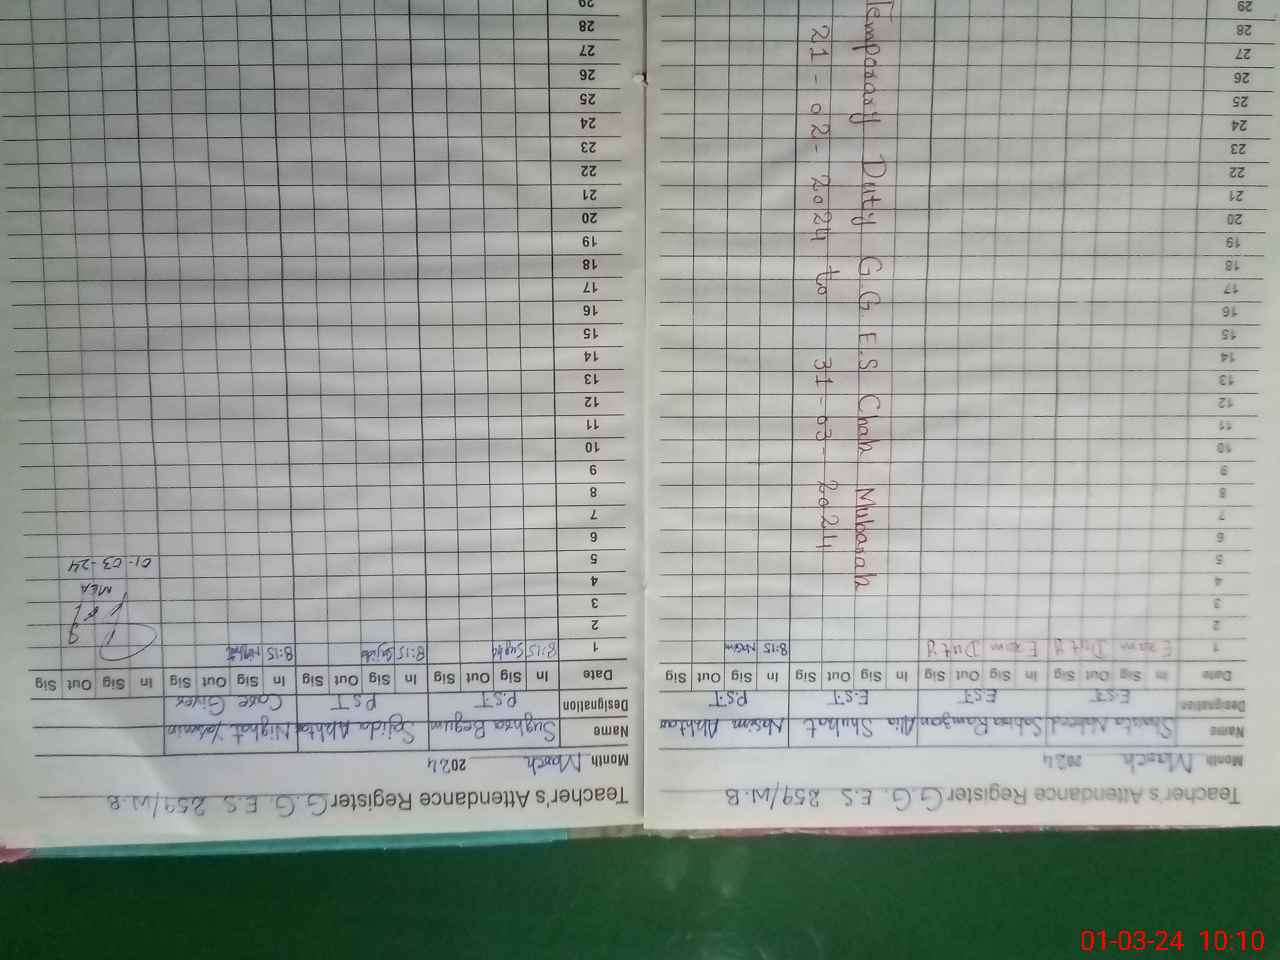 Teacher's Attendance Register G.G.E.S 259/W.B
Month March 2024
Name Shaista Naheed Sabira Ramzan Alia Shukat Nasim Akhtar
Designation E.S.T E.S.T E.S.T P.S.T
Date In Sig Out Sig In Sig Out Sig In Sig Out Sig In Sig Out Sig
1 Exam Duty Exam Duty 8:15 Nasim
2
3
4
5
6
7
8
9
10
11
12
13
14
15
16
17
18
19
20
21
22
23
24
25
26
27
28
29
Temporary Duty G.G.E.S Chak Mubarak
21-02-2024 to 31-03-2024
Teacher's Attendance Register G.G.E.S 259/W.B
Month March 2024
Name Sughra Begum Sajida Akhtar Nighat Yasmin
Designation P.S.T P.S.T Care Giver
Date In Sig Out Sig In Sig Out Sig In Sig Out Sig In Sig Out Sig
1 8:15 8:15 Sajida 8:15 Nighat
2
3
4 MEA
5 01-03-24
6
7
8
9
10
11
12
13
14
15
16
17
18
19
20
21
22
23
24
25
26
27
28
29
01-03-24 10:10